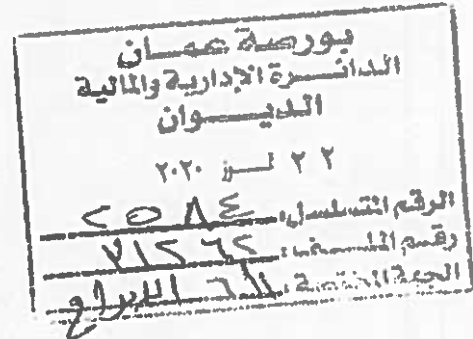 بورصة عمان
الدائرة الإدارية والمالية
الديوان
٢٢ تموز ٢٠٢٠
الرقم المتسلسل: ٢٥٨٤
رقم الملف: ٧١٢٦٢
الجهة المختصة: الإدراج